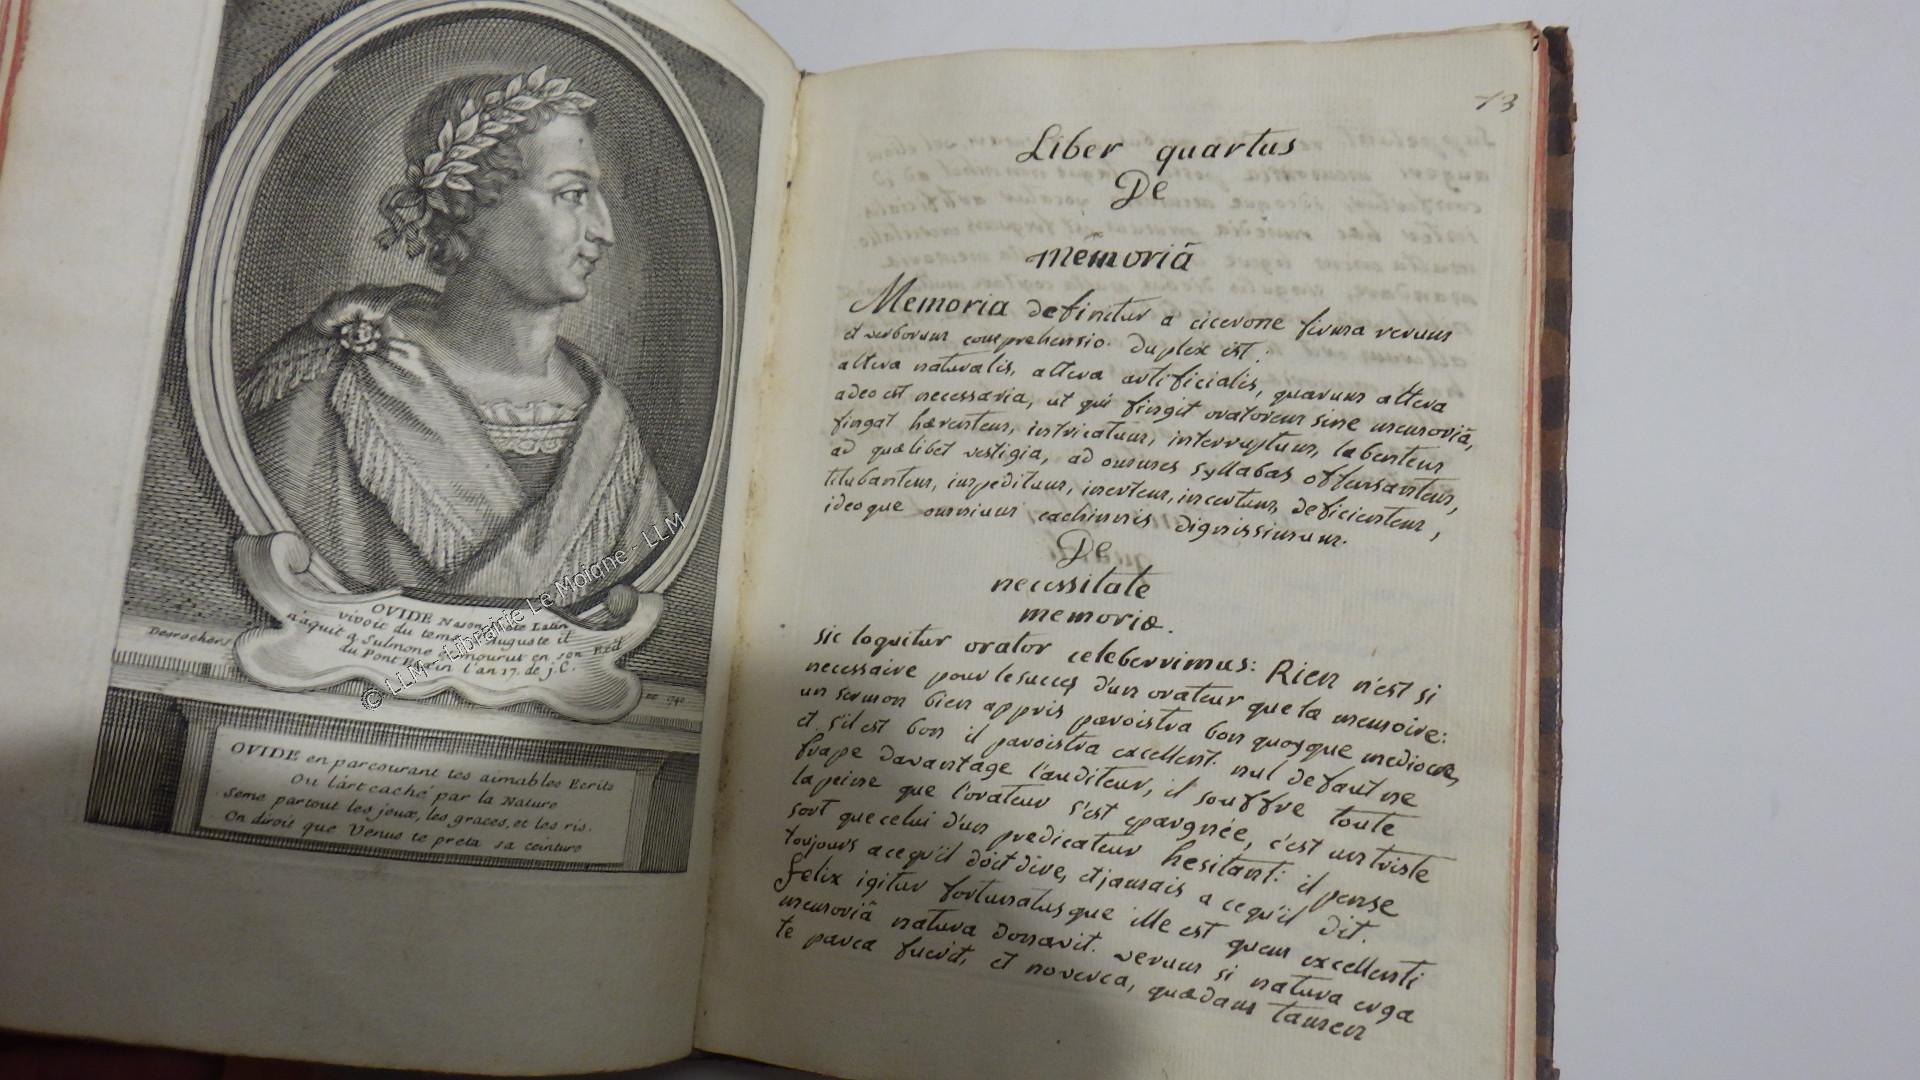 OVIDE Nason Poete Latin
vivoit du tems Auguste il
n'aquit a Sulmone et mourut en son Exil
du Pont Euxin l'an 17. de j.C.
Desrochers
OVIDE en parcourant tes aimables Ecrits
Ou l'art caché par la Nature
Seme partout les jeux, les graces, et les ris.
On diroit que Venus te preta sa ceinture
© LLM - Librairie Le Moiane - LLM
73
Liber quartus
De
memoriâ
Memoria definitur a cicerone firma rerum
et verborum comprehensio. duplex est:
altera naturalis, altera artificialis, quarum altera
adeo est necessaria, ut qui fingit oratorem sine memoriâ,
fingat hærentem, intricatum, interruptum, labentem
ad quælibet vestigia, ad omnes syllabas offensantem,
titubantem, impeditum, inertem, incertum, deficientem,
ideoque omnium cachinnis dignissimum.
De
necessitate
memoriæ.
sic loquitur orator celeberrimus: Rien n'est si
necessaire pour le succes d'un orateur que la memoire:
un sermon bien appris paroistra bon quoyque mediocre,
et s'il est bon il paroistra excellent. nul defaut ne
frape davantage l'auditeur, il souffre toute
la peine que l'orateur s'est epargnée, c'est un triste
sort que celui d'un predicateur hesitant: il pense
toujours a ce qu'il doit dire, et jamais a ce qu'il dit.
felix igitur fortunatusque ille est quem excellenti
memoriâ natura donavit. verum si natura erga
te parca fuerit, et noverca, quædam tamen